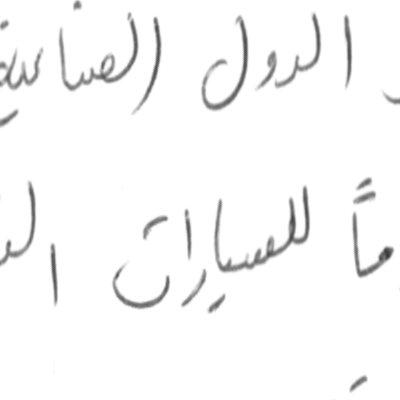 الدول الصناعية
للسيارات